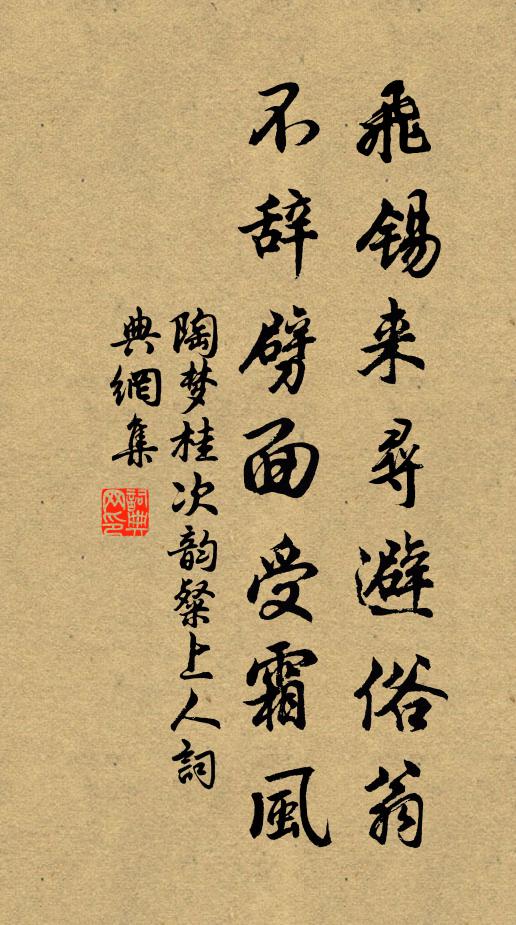 飛锡来尋避俗翁
不辞劈面受霜風
陶梦桂次韵粲上人詞
典網集
詞典网印